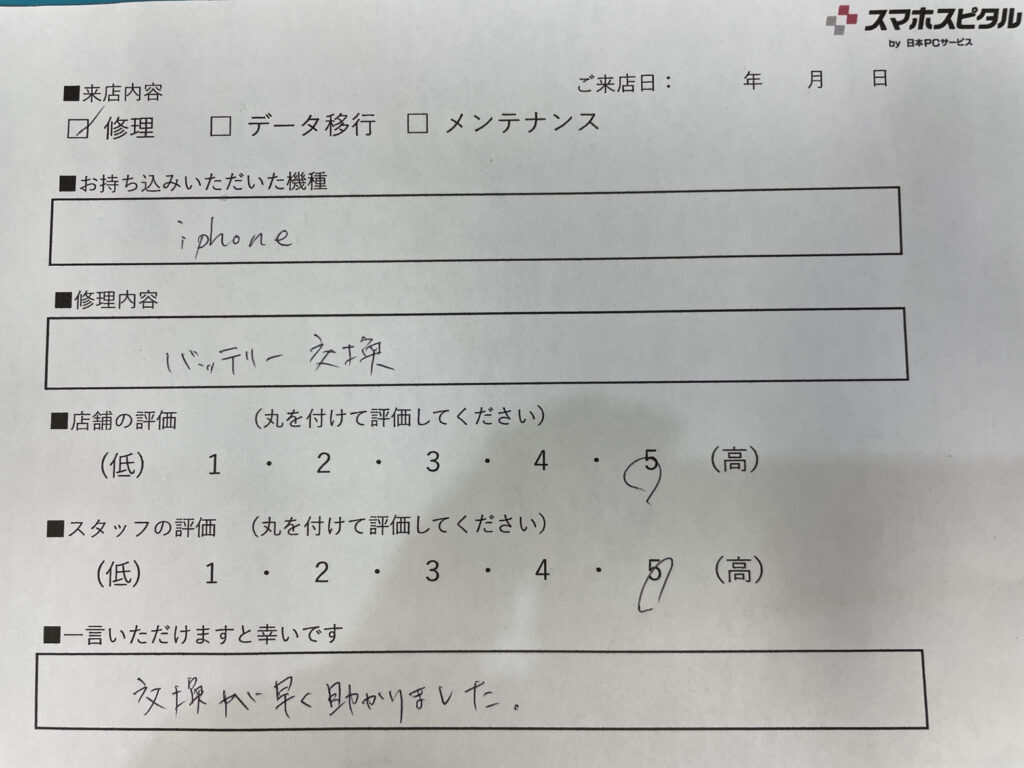 スマホスピタル
by 日本PCサービス
ご来店日： 年 月 日
■来店内容
☑ 修理 □ データ移行 □ メンテナンス
■お持ち込みいただいた機種
iphone
■修理内容
バッテリー交換
■店舗の評価 （丸を付けて評価してください）
（低） 1 ・ 2 ・ 3 ・ 4 ・ 5 （高）
■スタッフの評価 （丸を付けて評価してください）
（低） 1 ・ 2 ・ 3 ・ 4 ・ 5 （高）
■一言いただけますと幸いです
交換が早く助かりました.